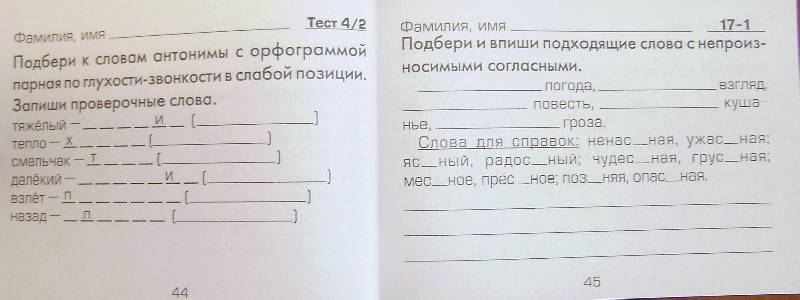 Фамилия, имя ____________________ Тест 4/2
Подбери к словам антонимы с орфограммой
парная по глухости-звонкости в слабой позиции.
Запиши проверочные слова.
тяжёлый — _ _ _ _ и _ (____________)
тепло — х _ _ _ _ (____________)
смельчак — т _ _ _ _ (____________)
далёкий — _ _ _ _ _ и _ (____________)
взлёт — п _ _ _ _ _ (____________)
назад — _ п _ _ _ _ (____________)
44
Фамилия, имя ____________________ 17-1
Подбери и впиши подходящие слова с непроиз-
носимыми согласными.
____________ погода, ____________ взгляд,
____________ повесть, ____________ куша-
нье, ____________ гроза.
Слова для справок: ненас__ная, ужас__ная;
яс__ный, радос__ный; чудес__ная, грус__ная;
мес__ное, прес__ное; поз__няя, опас__ная.
45